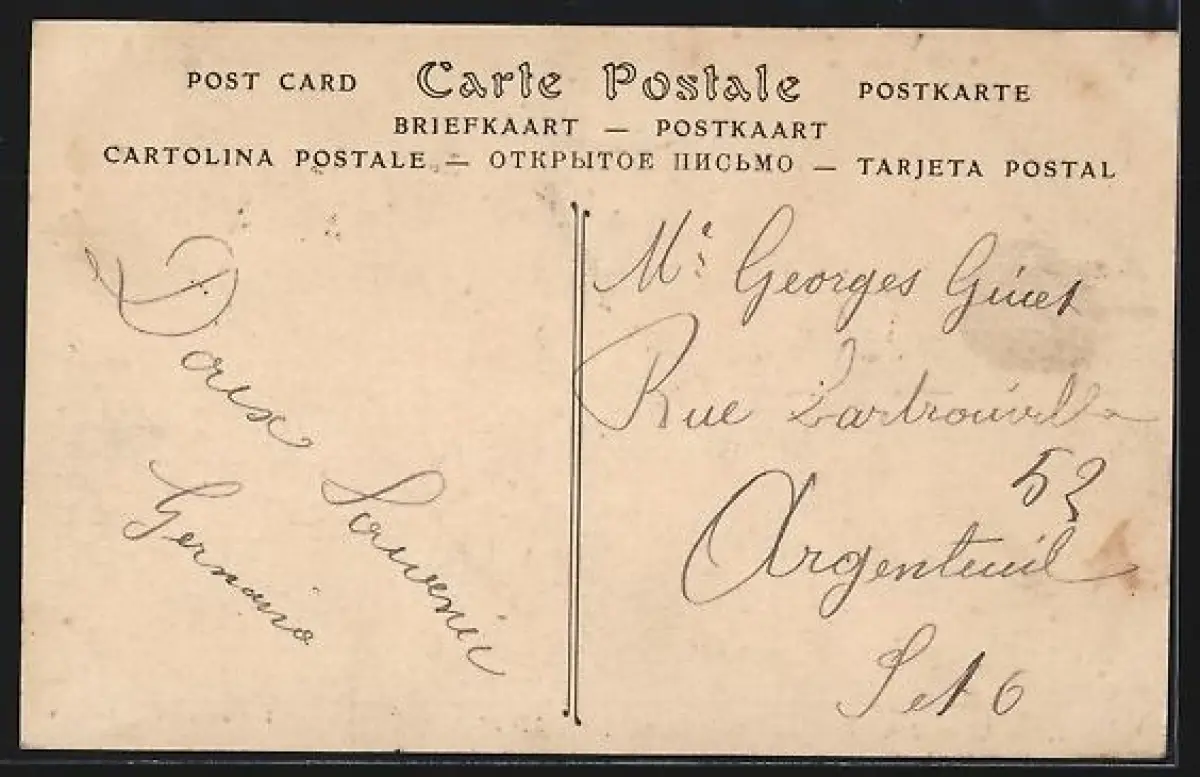 POST CARD Carte Postale POSTKARTE
BRIEFKAART — POSTKAART
CARTOLINA POSTALE — ОТКРЫТОЕ ПИСЬМО — TARJETA POSTAL
Doux Souvenir
Germaine
Mr Georges Ginet
Rue Sartrouville
53
Argenteuil
S et O